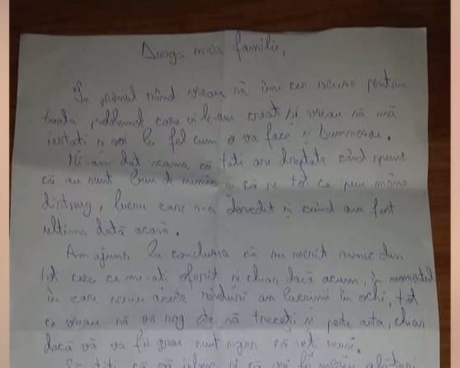 Draga mea familie,
În primul rând vreau să îmi cer scuze pentru
toate problemele care vi le-am creat și vreau să mă
iertați și voi la fel cum o va face și Dumnezeu.
Mi-am dat seama că tati are dreptate când spune
că nu sunt bun de nimic și că pe tot ce pun mâna
distrug, lucru care s-a dovedit și când am fost
ultima dată acasă.
Am ajuns la concluzia că nu merit nimic din
tot ceea ce mi-ați oferit și chiar dacă acum, în momentul
în care scriu aceste rânduri am lacrimi în ochi, tot
ce vreau să vă rog este să treceți și peste asta, chiar
dacă vă va fi greu sunt sigur că veți reuși.
Să știți că vă iubesc și că voi fi mereu alături